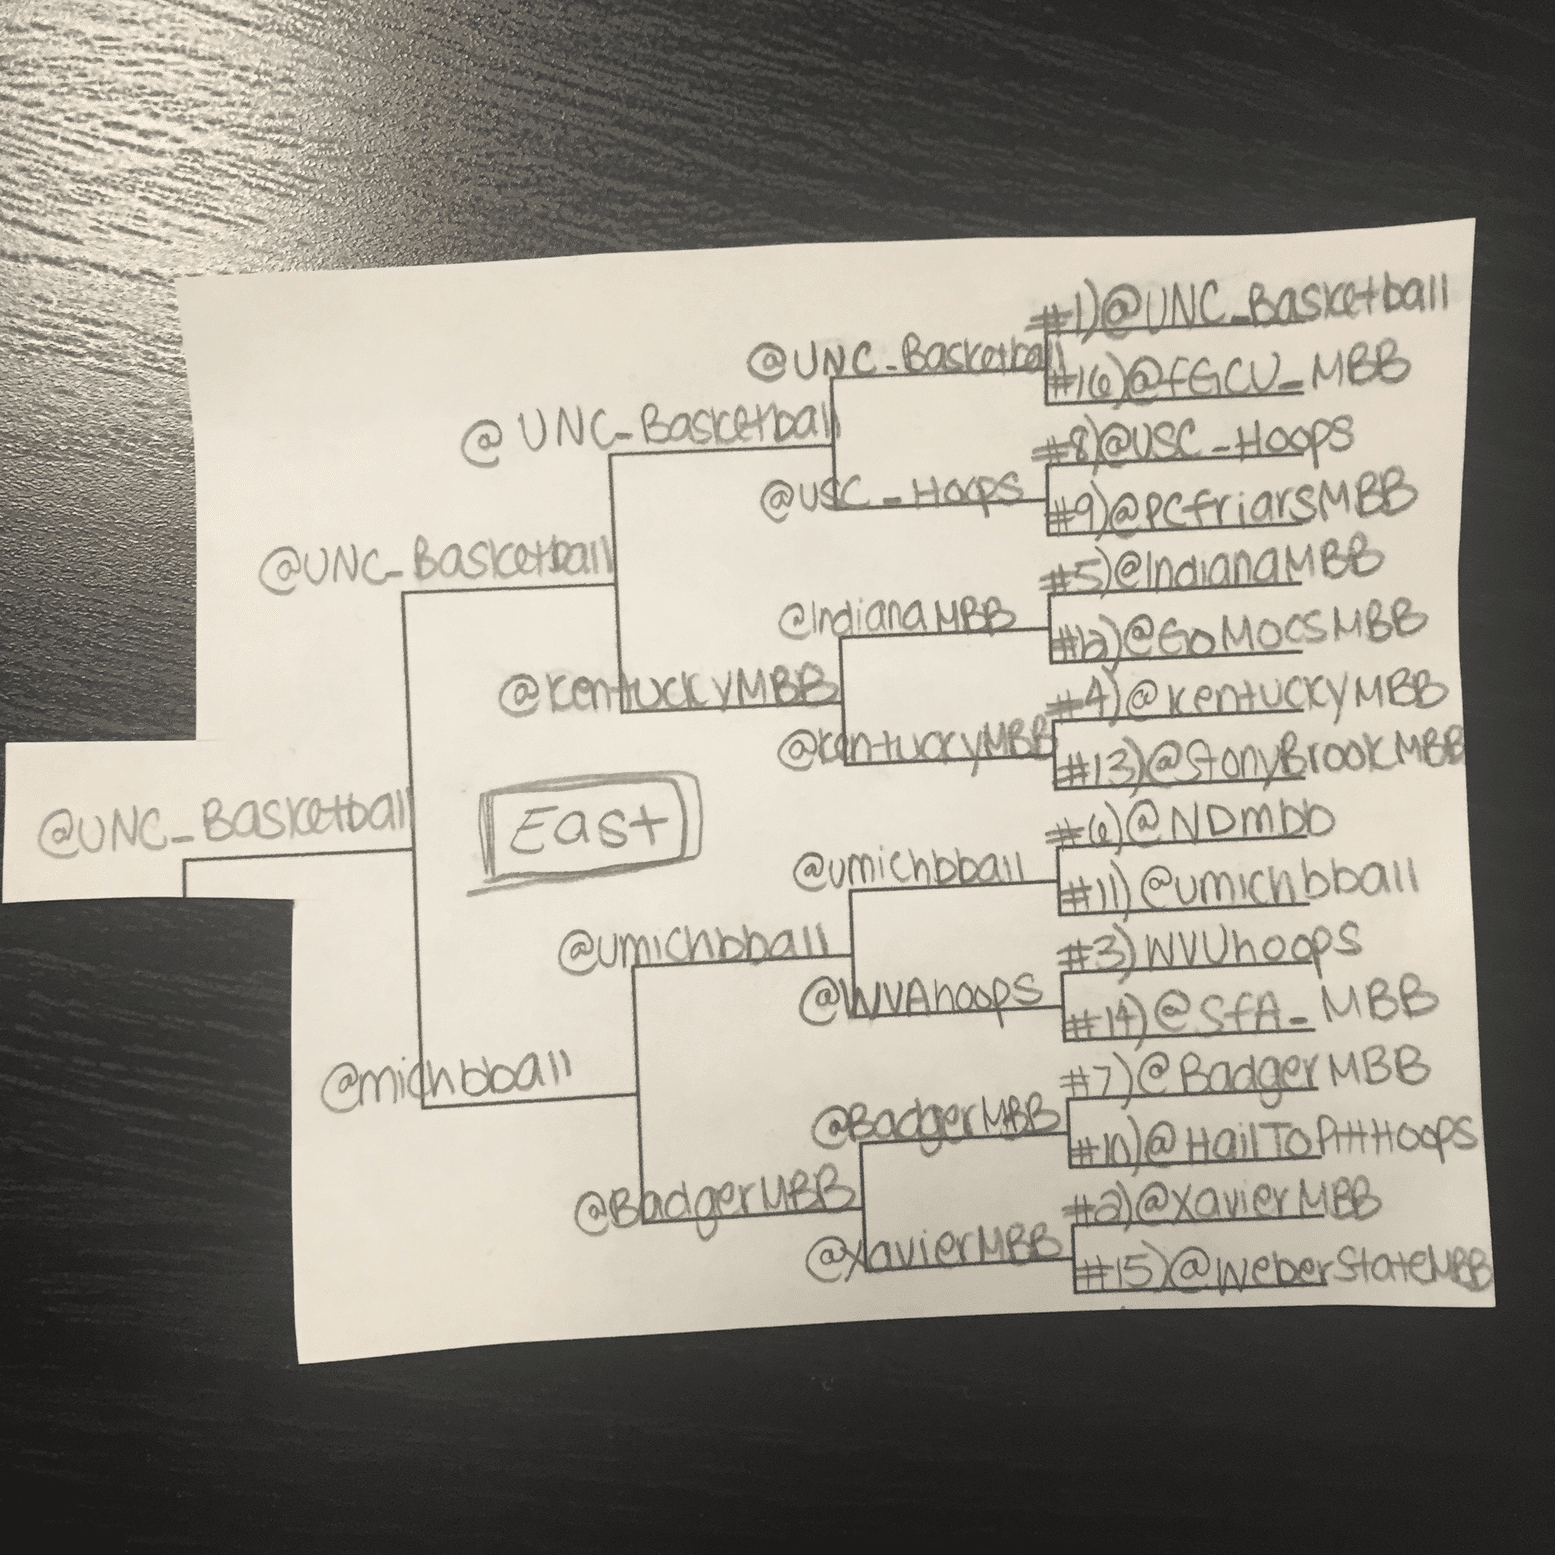 #1)@UNC_Basketball
@UNC_Basketball
#16)@fGCU_MBB
@UNC_Basketball
#8)@USC_Hoops
@USC_Hoops
#9)@PCfriarsMBB
@UNC_Basketball
#5)@IndianaMBB
@IndianaMBB
#12)@GoMocsMBB
@KentuckyMBB
#4)@KentuckyMBB
@KentuckyMBB
#13)@StonyBrookMBB
@UNC_Basketball
East
#6)@NDmbb
@umichbball
#11)@umichbball
@umichbball
#3)WVUhoops
@WVAhoops
#14)@SfA_MBB
@michbball
#7)@BadgerMBB
@BadgerMBB
#10)@HailToPittHoops
@BadgerMBB
#2)@XavierMBB
@XavierMBB
#15)@WeberStateMBB